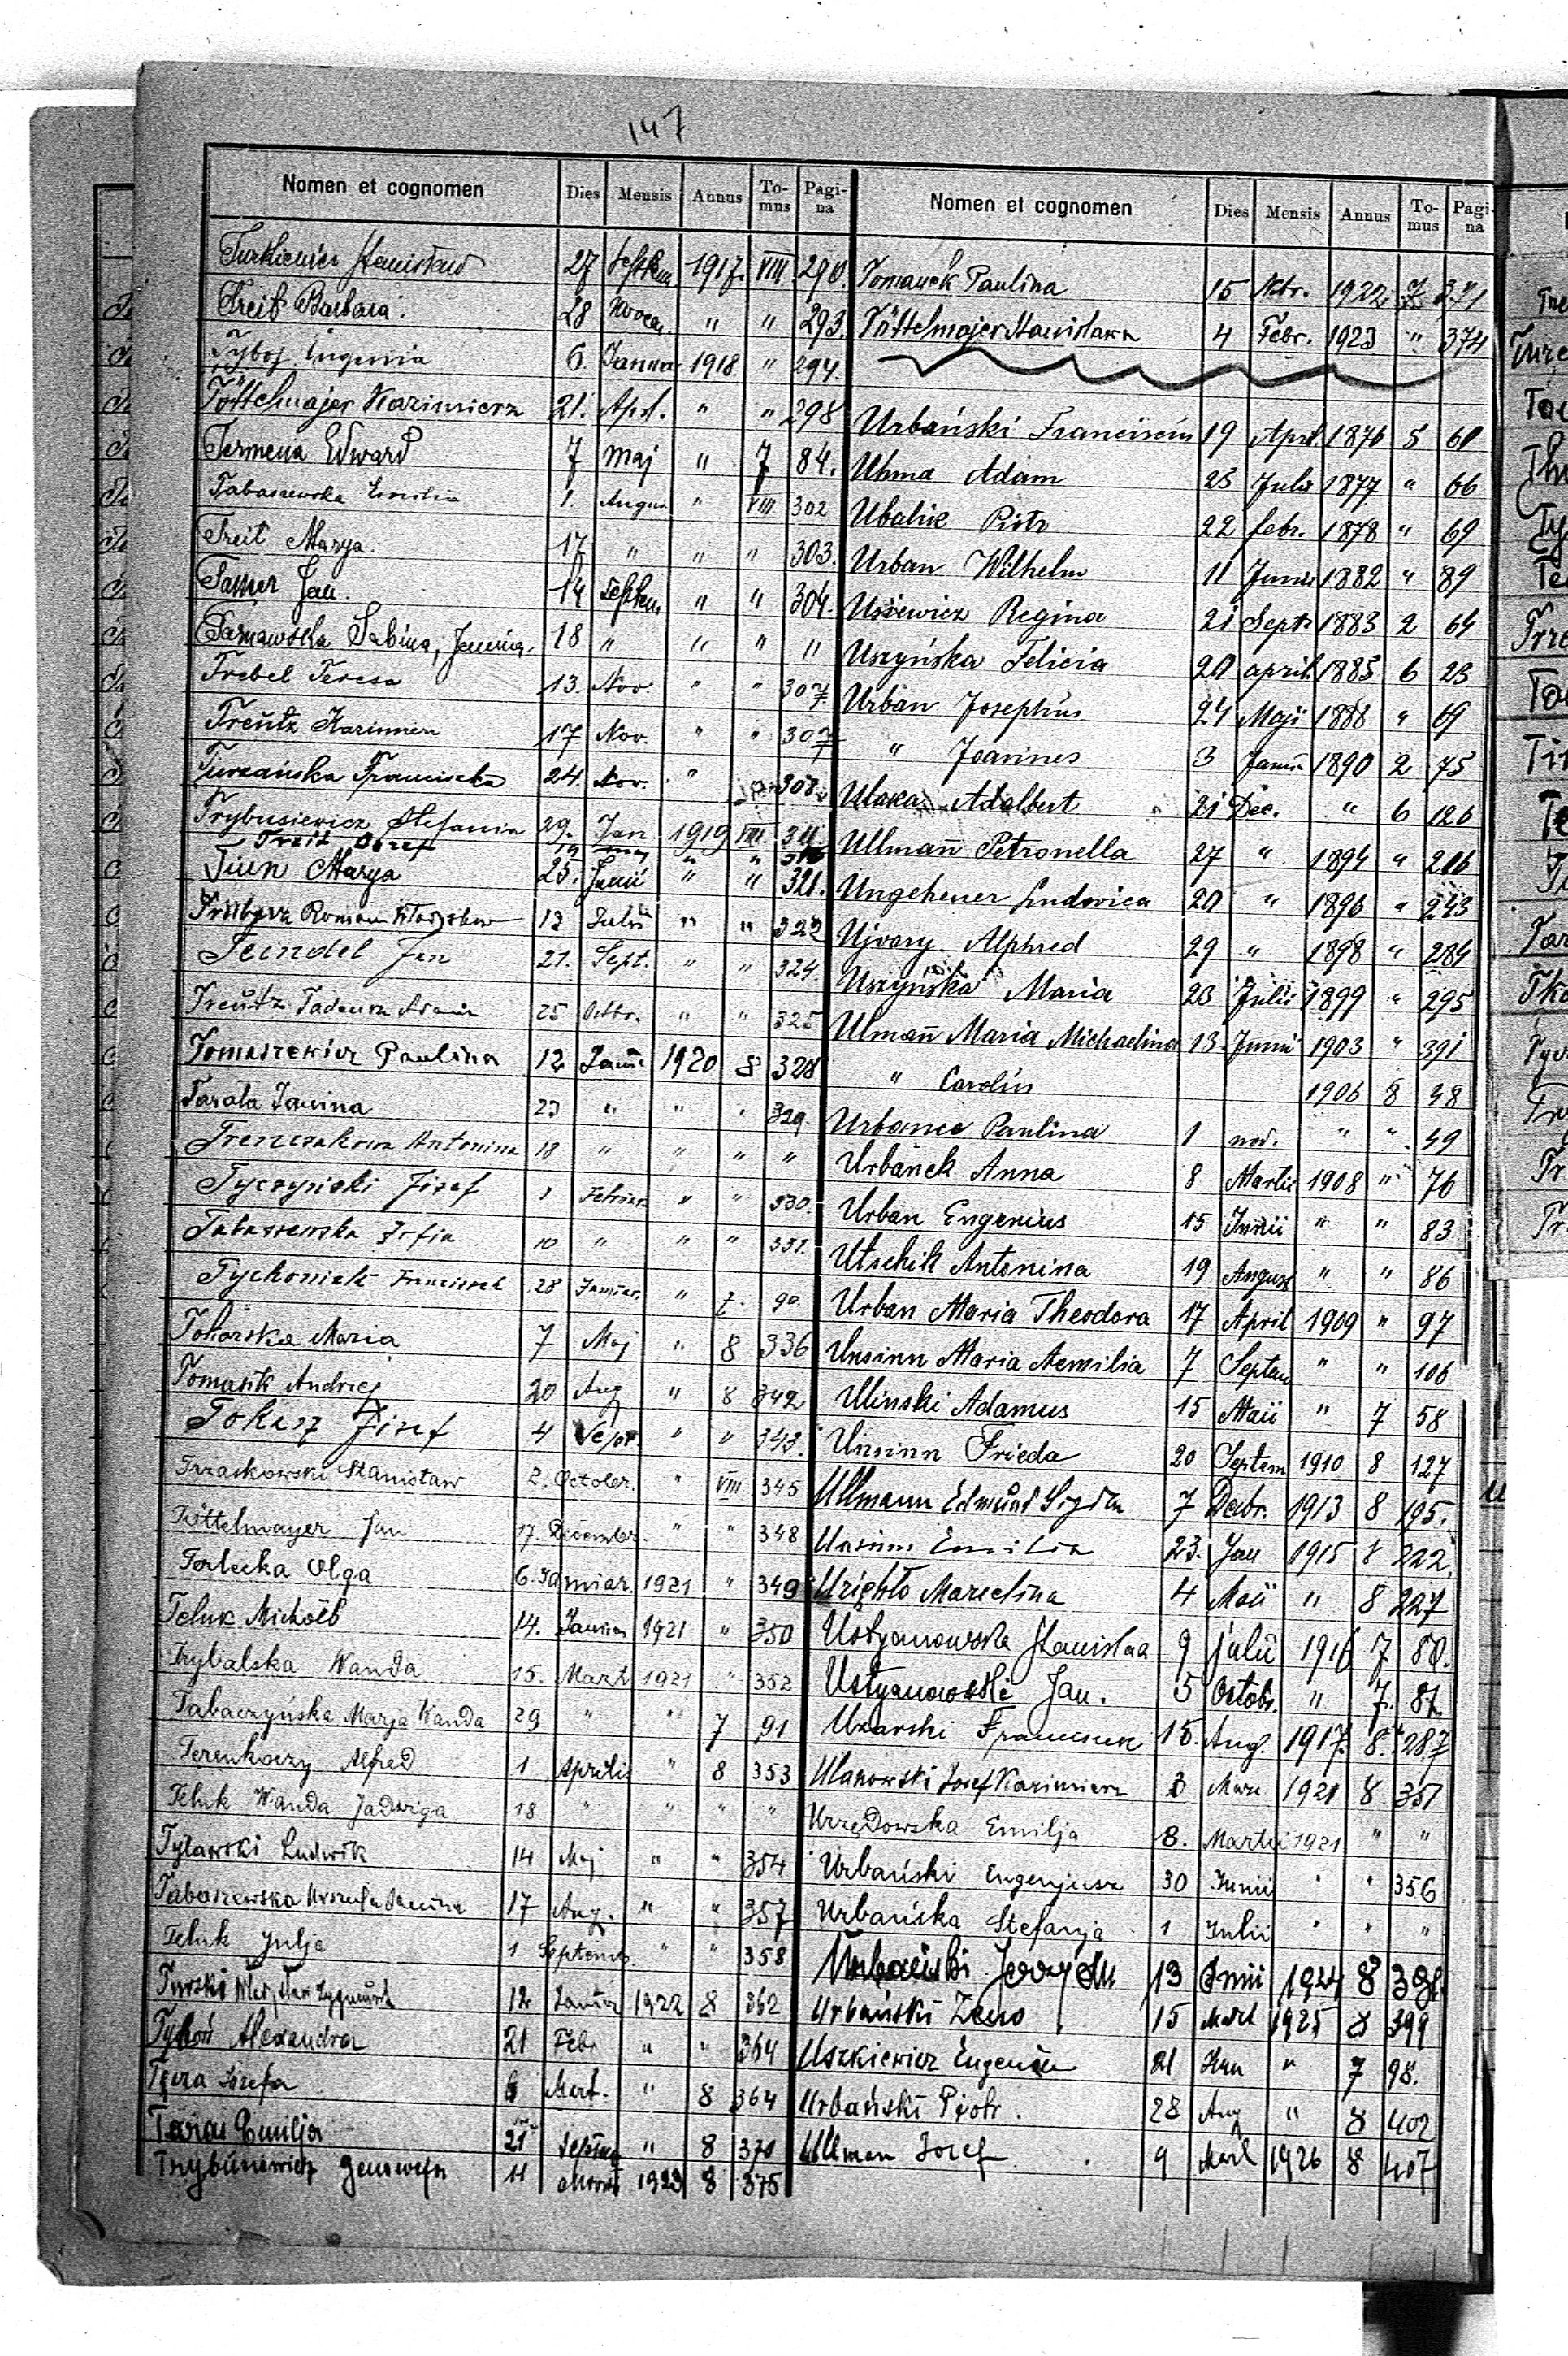 147
Nomen et cognomen Dies Mensis Annus To-mus Pagi-na
Turkiewicz Stanisław 27 Septem. 1917. VIII. 290.
Treit Barbara. 28 " " 293.
Tyboj Eugenia 6. Januar. 1918 " 294.
Töttelmajer Kazimierz 21. Apr. " " 298
Termena Edward 7 Maj " 7 84.
Tabaszewska Emilia 1. August " VIII 302
Treit Marya. 17 " " " 303.
Jan. 14 Septem " " 304.
Tarnawska Sabina, Janina. 18 " " " "
Trebel Teresa 13. Nov. " " 307.
Treutz Kazimierz 17. Nov. " " 307
Turzańska Franciszka 24. Nov. " 308.
Trybusiewicz Stefania 29. Jan 1919 VIII. 311
Treit Józef 14 maj " "
Marya 25. Junii " " 321.
Roman 13 Julii " " 322
Teindel Jan 21. Sept. " " 324
Treutz Tadeusz Adam 25 Octbr. " " 325
Tomaszewicz Paulina 12 Janu 1920 8 328
Tarała Janina 23 " " " 329
Trenczakowa Antonina 18 " " " "
Tyczyński Józef 1 Februar " " 330.
Tabaszewska Zofia 10 " " " 331.
Tychoniak Franciszek 28 Januar. " 7. 90.
Tokarska Maria 7 Maj " 8 336
Tomasik Andrzej 20 Aug " 8 342
Tokarz Józef 4 Sept. " " 343.
Trzaskowski Stanisław 2. October. " VIII 345
Töttelmayer Jan 17. December. " " 348
Torlecka Olga 6. Januar. 1921 " 349
Teluk Michał 14. Januar 1921 " 350
Trybalska Wanda 15. Mart 1921 " 352
Tabaczyńska Marja Wanda 29 " " 7 91
Terenkoczy Alfred 1 Aprilis " 8 353
Teluk Wanda Jadwiga 18 " " " "
Tylawski Ludwik 14 Maj " " 354
Tabaszewska Urszula Janina 17 Aug. " " 357
Teluk Julja 1 Septemb. " " 358
Turski Zygmunt 12 Januar 1922 8 362
Tychoń Alexandra 21 Febr " " 364
Józefa 6 Mart. " 8 364
Taras Emilja 21 Septem " 8 370
Trybusiewicz Genowefa 11 1923 8 375
Nomen et cognomen Dies Mensis Annus To-mus Pagi-na
Tomanek Paulina 15 Nbr. 1922 371
Töttelmajer Stanisława 4 Febr. 1923 " 374
Urbański Franciscus 19 April 1876 5 61
Uhma Adam 23 Julii 1877 " 66
Ubalik Piotr 22 febr. 1878 " 69
Urban Wilhelm 11 Junii 1882 " 89
Usiewicz Regina 21 Septr 1883 2 64
Uszyńska Felicia 20 april. 1885 6 23
Urban Josephus 24 Maji 1888 " 69
" Joannes 3 Janu 1890 2 75
Adalbert 21 Dec. " 6 126
Ullmann Petronella 27 " 1894 " 216
Ungeheuer Ludovica 20 " 1896 " 243
Ujvary Alphred 29 " 1898 " 284
Uszyńska Maria 23 Julii 1899 " 295
Ulmann Maria Michaelina 13. Junii 1903 " 391
" Carolus 1906 8 48
Urbanec Paulina 1 nov. " " 49
Urbanek Anna 8 Martii 1908 " 76
Urban Eugenius 15 Junii " " 83
Utschik Antonina 19 August " " 86
Urban Maria Theodora 17 April 1909 " 97
Unsinn Maria Aemilia 7 Septem " " 106
Uliński Adamus 15 Maii " 7 58
Unsinn Frieda 20 Septem 1910 8 127
Ullmann Edmund 7 Decbr. 1913 8 195.
Unsinn Emilia 23. Jan 1915 8 222.
Marcelina 4 Maii " 8 227
Ustyanowska Stanisława 9 julii 1916 7 80.
Ustyanowski Jan. 5 Octobr. " 7. 82.
Uzarski Franciszek 15. Aug. 1917. 8. 287
Ulanowski Josef Kazimierz 3 1921 8 351
Urzędowska Emilja 8. Martii 1921 " "
Urbański Eugenjusz 30 Junii " " 356
Urbańska Stefanja 1 Julii " " "
Urbański Jerzy 13 Junii 1924 8
Urbański Zeno 15 Mart 1925 8 399
Uszkiewicz Eugenia 21 " 7 98.
Urbański Piotr. 28 Aug " 8 402
Ullman Josef 9 1926 8 407